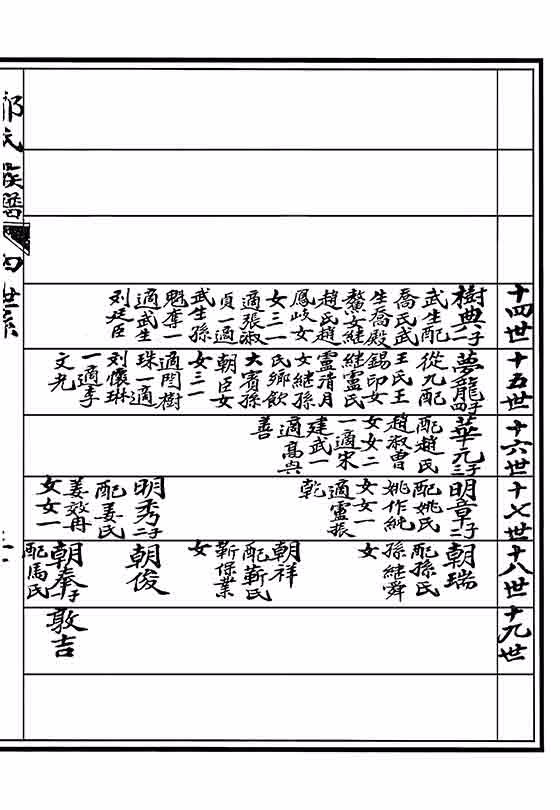 十四世
樹典二子
武生配
喬氏武
生喬殿
鰲女継
趙氏趙
鳳岐女
女三一
適張淑
貞一適
武生孫
魁奪一
適武生
刘廷臣
十五世
夢龍四子
從九配
王氏王
錫印女
継盧氏
盧清月
女継孫
氏鄉飲
大賓孫
朝臣女
女三一
適閏樹
珠一適
刘懷琳
一適李
文光
十六世
華元三子
配趙氏
趙淑曹
女女二
一適宋
建武一
適高典
善
十七世
明章二子
配姚氏
姚作純
女女一
適盧振
乾
明秀二子
配姜氏
姜效冉
女女一
十八世
朝瑞
配孫氏
孫継舜
女
朝祥
配靳氏
靳保業
女
朝俊
朝奉子
配馬氏
十九世
敦吉
氏族譜
世系